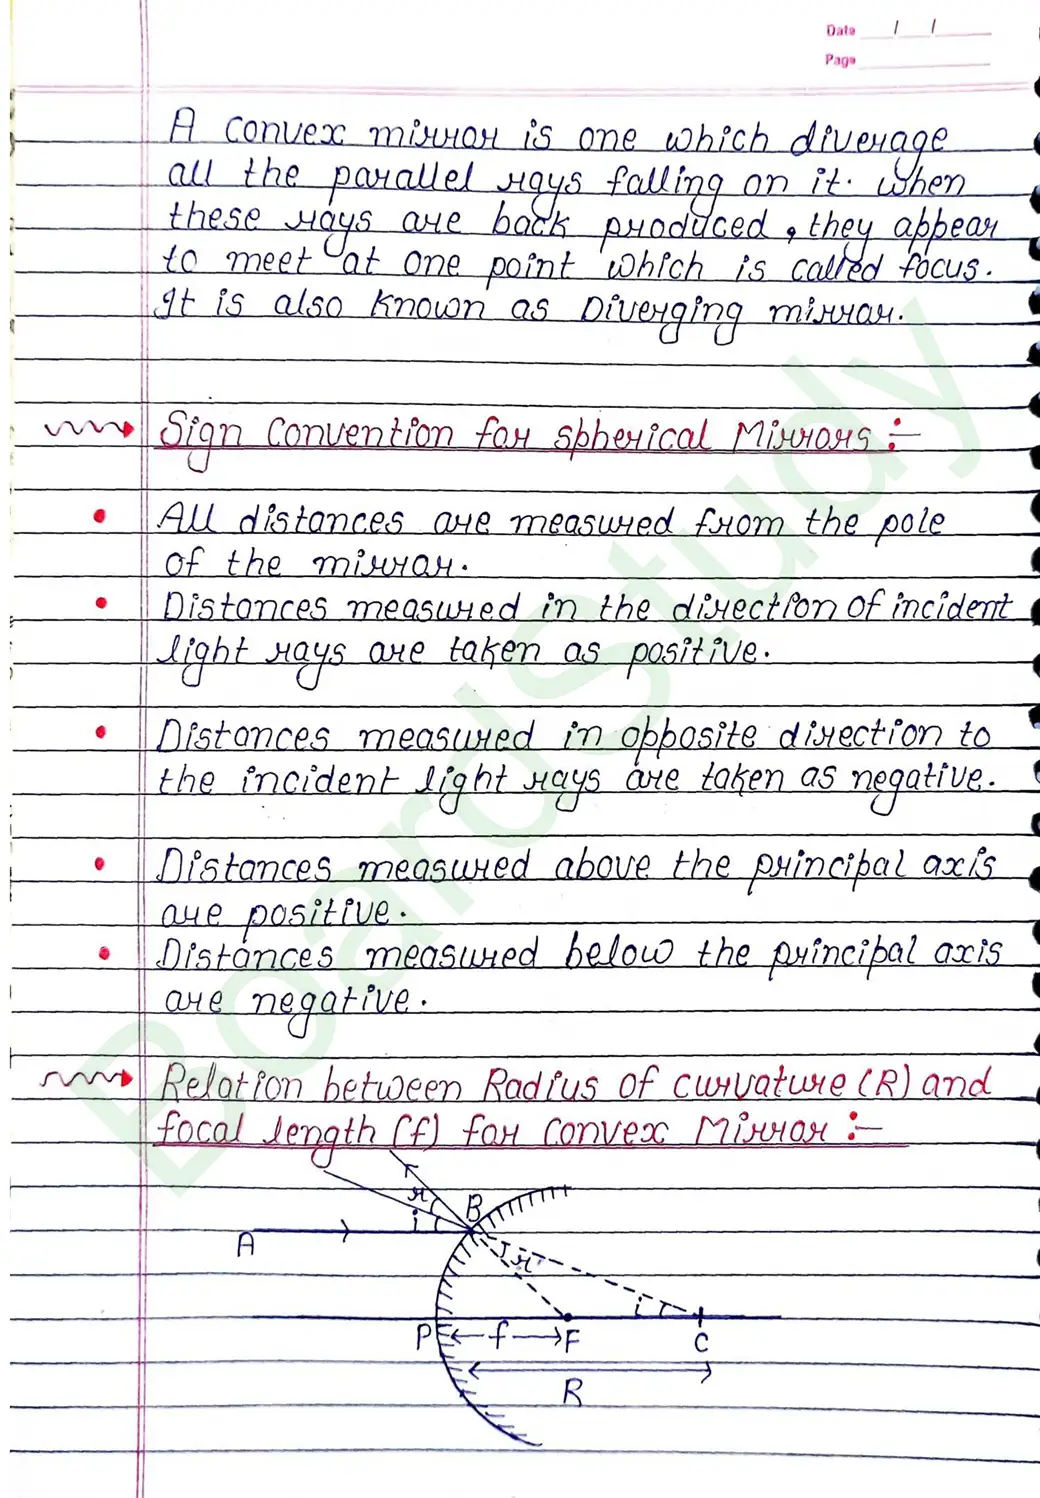 Date / /
Page
A convex mirror is one which diverage
all the parallel rays falling on it. When
these rays are back produced, they appear
to meet at one point which is called focus.
It is also known as Diverging mirror.
Sign Convention for spherical Mirrors :-
All distances are measured from the pole
of the mirror.
Distances measured in the direction of incident
light rays are taken as positive.
Distances measured in opposite direction to
the incident light rays are taken as negative.
Distances measured above the principal axis
are positive.
Distances measured below the principal axis
are negative.
Relation between Radius of curvature (R) and
focal length (f) for convex Mirror :-
r B
A i
r
i
P f F C
R
BoardStudy